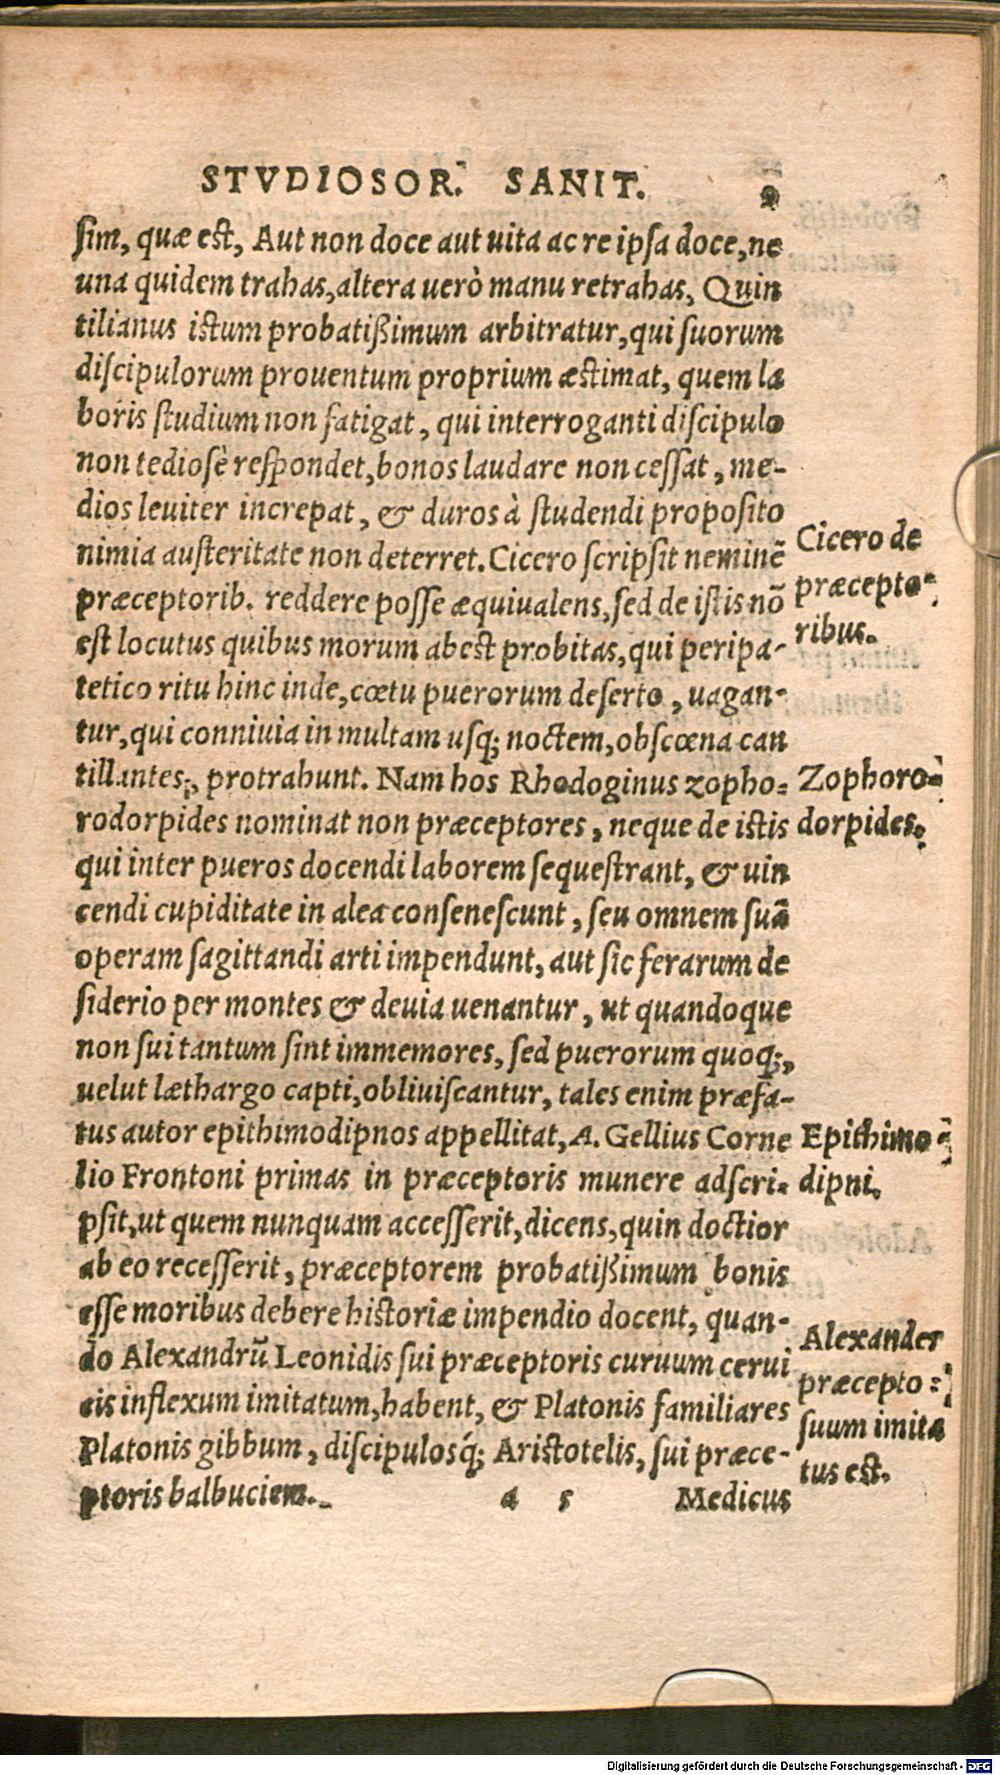 STVDIOSOR. SANIT. 9
sim, quæ est, Aut non doce aut uita ac re ipsa doce, ne
una quidem trahas, altera uerò manu retrahas, Quin
tilianus istum probatißimum arbitratur, qui suorum
discipulorum prouentum proprium æstimat, quem la
boris studium non fatigat, qui interroganti discipulo
non tediosè respondet, bonos laudare non cessat, me-
dios leuiter increpat, & duros à studendi proposito
nimia austeritate non deterret. Cicero scripsit neminē
præceptorib. reddere posse æquiualens, sed de istis nō
est locutus quibus morum abest probitas, qui peripa-
tetico ritu hinc inde, cœtu puerorum deserto, uagan-
tur, qui conniuia in multam usq; noctem, obscœna can
tillantes, protrahunt. Nam hos Rhodoginus zopho-
rodorpides nominat non præceptores, neque de istis
qui inter pueros docendi laborem sequestrant, & uin
cendi cupiditate in alea consenescunt, seu omnem suā
operam sagittandi arti impendunt, aut sic ferarum de
siderio per montes & deuia uenantur, ut quandoque
non sui tantum sint immemores, sed puerorum quoq;,
uelut læthargo capti, obliuiscantur, tales enim præfa-
tus autor epithimodipnos appellitat, A. Gellius Corne
lio Frontoni primas in præceptoris munere adscri-
psit, ut quem nunquam accesserit, dicens, quin doctior
ab eo recesserit, præceptorem probatißimum bonis
esse moribus debere historiæ impendio docent, quan-
do Alexandrū Leonidis sui præceptoris curuum cerui
cis inflexum imitatum, habent, & Platonis familiares
Platonis gibbum, discipulosq́; Aristotelis, sui præce-
ptoris balbuciem.
a 5 Medicus
Cicero de
præcepto-
ribus.
Zophoro-
dorpides.
Epithimo-
dipni.
Alexander
præcepto-
suum imita
tus est.
Digitalisierung gefördert durch die Deutsche Forschungsgemeinschaft - DFG